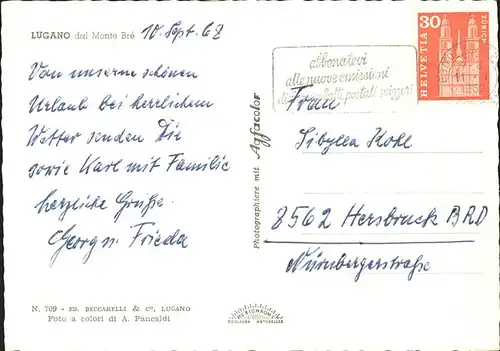 LUGANO dal Monte Brè 10. Sept. 68
Von unserm schönen
Urlaub bei herrlichem
Wetter senden Dir
sowie Karl mit Familie
herzliche Grüße
Georg u. Frieda
N. 709 - ED. BECCARELLI & Co, LUGANO
Foto a colori di A. Pancaldi
Photographiere mit Agfacolor
abbonatevi
alle nuove emissioni
di francobolli postali svizzeri
30
HELVETIA
ZÜRICH
Frau
Sibylla Kohl
8562 Hersbruck BRD
Nürnbergerstraße
COULEURS NATURELLES